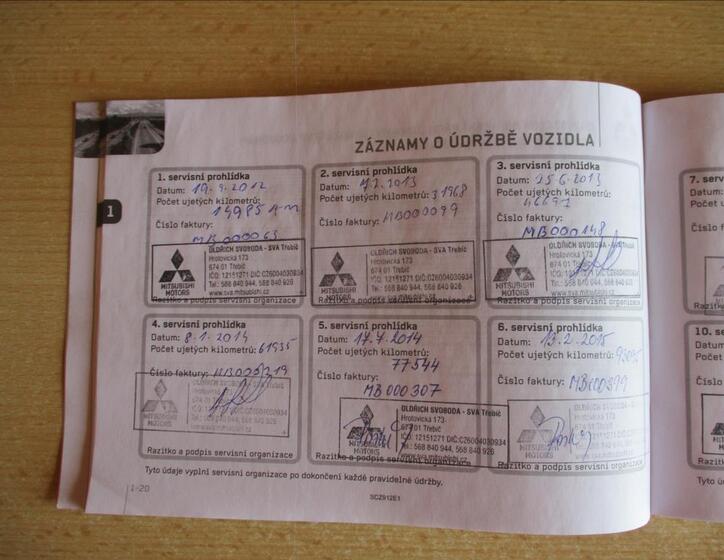 ZÁZNAMY O ÚDRŽBĚ VOZIDLA
1
1. servisní prohlídka
Datum: 19.9.2012
Počet ujetých kilometrů:
14985 km
Číslo faktury:
MB000063
MITSUBISHI MOTORS
OLDŘICH SVOBODA - SVA Třebíč
Hrotovická 173
674 01 Třebíč
IČO: 12151271 DIČ:CZ6004030934
Tel.: 568 840 944, 568 840 926
www.sva.mitsubishi.cz
Razítko a podpis servisní organizace
2. servisní prohlídka
Datum: 2013
Počet ujetých kilometrů: 31968
Číslo faktury: MB000099
MITSUBISHI MOTORS
OLDŘICH SVOBODA - SVA Třebíč
Hrotovická 173
674 01 Třebíč
IČO: 12151271 DIČ:CZ6004030934
Tel.: 568 840 944, 568 840 926
www.sva.mitsubishi.cz
Razítko a podpis servisní organizace
3. servisní prohlídka
Datum: 25.6.2013
Počet ujetých kilometrů:
Číslo faktury:
MB000148
MITSUBISHI MOTORS
OLDŘICH SVOBODA - SVA Třebíč
Hrotovická 173
674 01 Třebíč
IČO: 12151271 DIČ:CZ6004030934
Tel.: 568 840 944, 568 840 926
www.sva.mitsubishi.cz
Razítko a podpis servisní organizace
4. servisní prohlídka
Datum: 8.1.2014
Počet ujetých kilometrů: 61935
Číslo faktury:
MITSUBISHI MOTORS
OLDŘICH SVOBODA - SVA Třebíč
Hrotovická
Razítko a podpis servisní organizace
5. servisní prohlídka
Datum: 17.7.2014
Počet ujetých kilometrů:
77544
Číslo faktury:
MB000307
MITSUBISHI MOTORS
OLDŘICH SVOBODA - SVA Třebíč
Hrotovická 173
674 01 Třebíč
IČO: 12151271 DIČ:CZ6004030934
Tel.: 568 840 944, 568 840 926
www.sva.mitsubishi.cz
Razítko a podpis servisní organizace
6. servisní prohlídka
Datum: 13.2.2015
Počet ujetých kilometrů:
Číslo faktury: MB000399
MITSUBISHI MOTORS
OLDŘICH SVOBODA - SVA Třebíč
Razítko a podpis servisní organizace
Tyto údaje vyplní servisní organizace po dokončení každé pravidelné údržby.
1-20
SCZ912E1
7. ser
Datum:
Počet u
Číslo f
Razít
10. se
Datum
Poče
Číslo
Razí